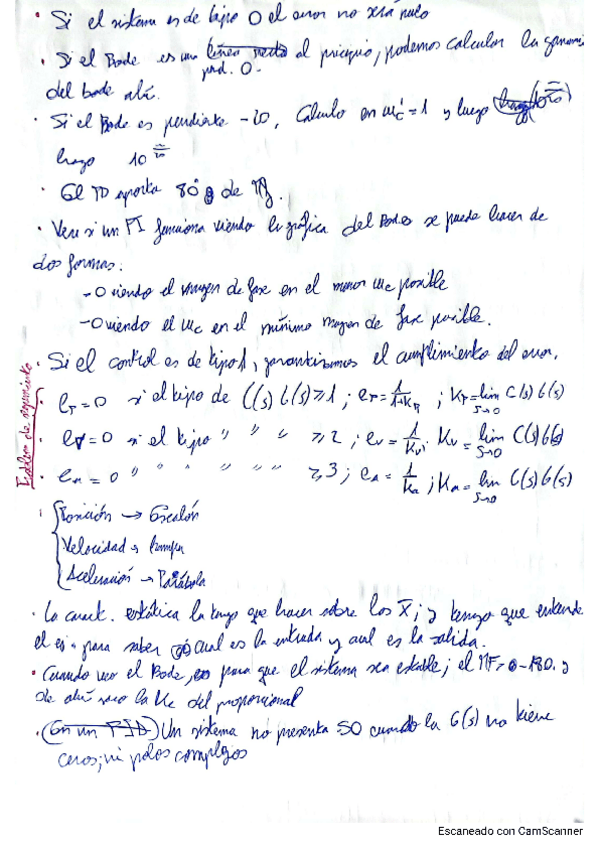 · Si el sistema es de tipo 0 el error no será nulo
· Si el Bode es una línea recta al principio, podemos calcular la ganancia
pend. 0.
del bode ahí.
· Si el Bode es pendiente -20, calculo en wc'=1 y luego
hago 10
· El TD aporta 80º de
· Ver si un PI funciona viendo la gráfica del Bode se puede hacer de
dos formas:
- O viendo el margen de fase en el menor wc posible
- O viendo el wc en el mínimo margen de fase posible.
· Si el control es de tipo 1, garantizamos el cumplimiento del error.
Problema de seguimiento
· ep=0 si el tipo de C(s)G(s)≥1; ep=1/1+Kp ; Kp=lim s→0 C(s)G(s)
· ev=0 si el tipo " " " ≥2; ev=1/Kv; Kv=lim s→0 C(s)G(s)
· ea=0 " " " " " " ≥3; ea=1/Ka; Ka=lim s→0 C(s)G(s)
Posición → Escalón
Velocidad → Rampa
Aceleración → Parábola
· La caract. estática la tengo que hacer sobre los X; y tengo que entender
el ej. para saber cual es la entrada y cual es la salida.
· Cuando veo el Bode, para que el sistema sea estable; el MF=0-180. y
de ahí saco la Uc del proporcional
· (En un PID) Un sistema no presenta SO cuando la G(s) no tiene
ceros; ni polos complejos
Escaneado con CamScanner